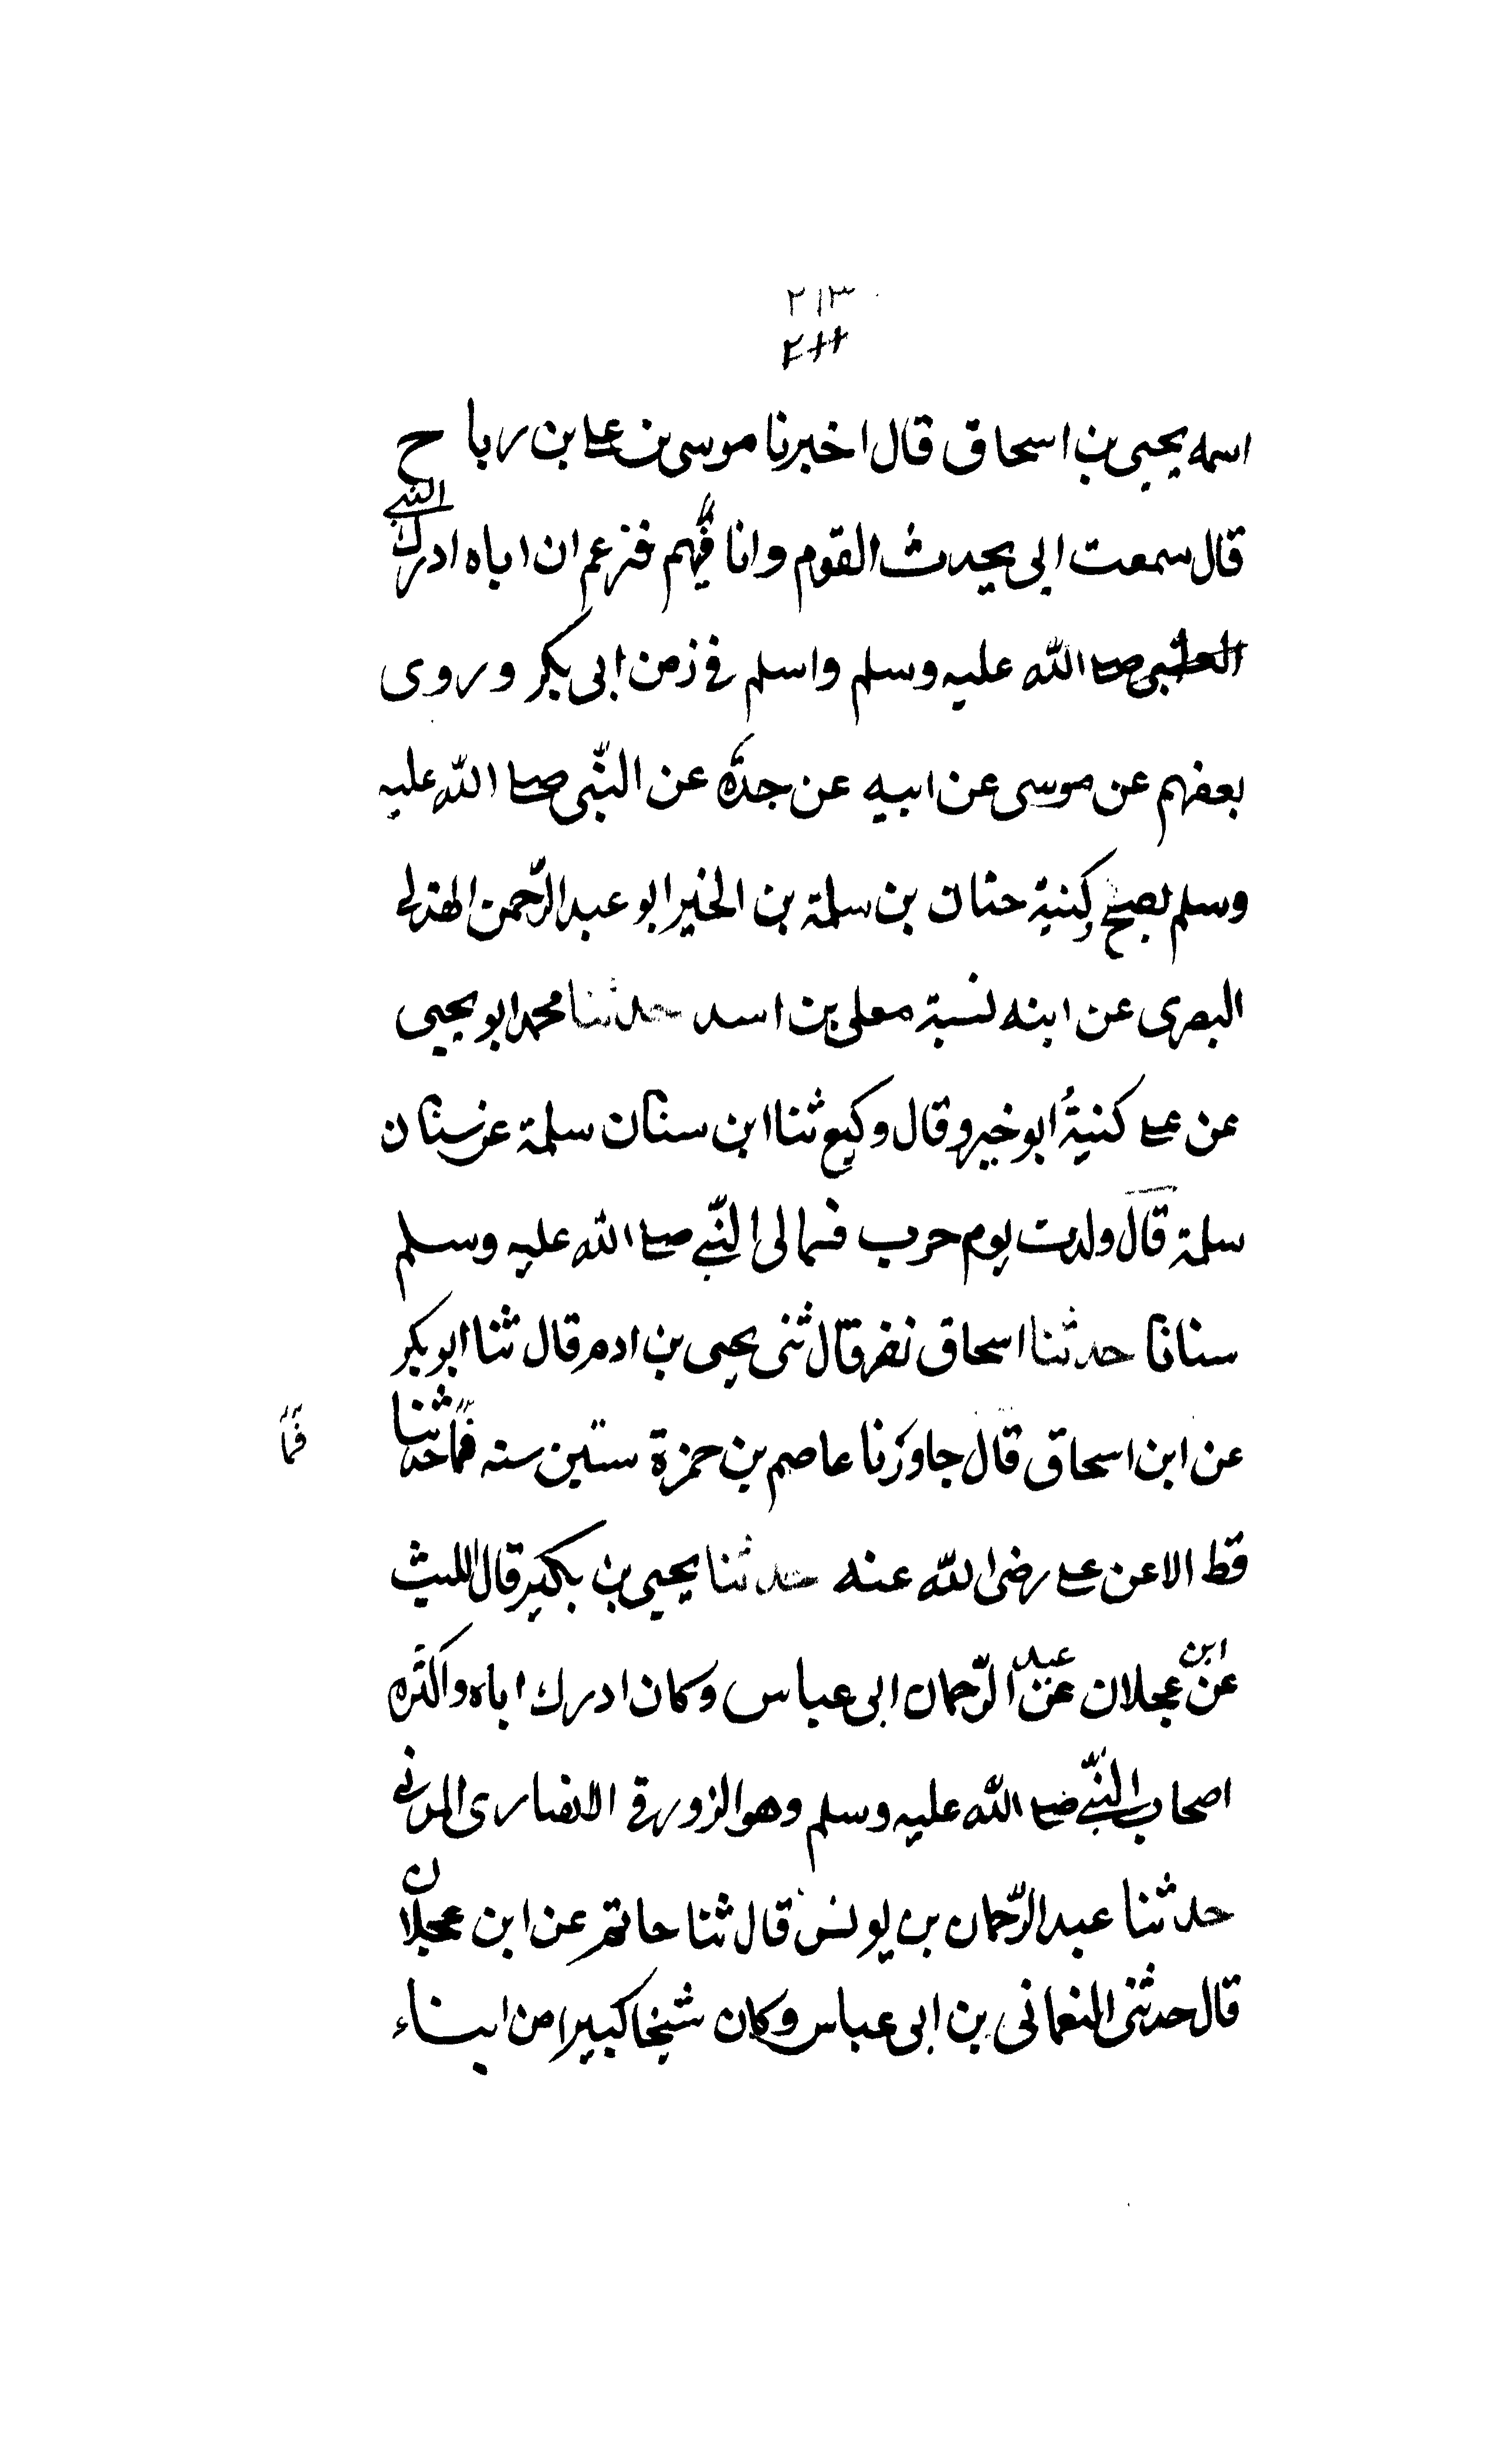 ٢١٣
اسمه يحيى بن اسحاق قال اخبرنا موسى بن على بن رباح
قال سمعت ابى يحدث القوم وانا فيهم فزعم ان اباه ادرك النبي
صلى الله عليه وسلم واسلم في زمن ابى بكر وروى
بعضهم عن موسى عن ابيه عن جده عن النبى صلى الله عليه
وسلم يصح كنية حنان بن سلمة بن الخير ابو عبد الرحمن الهذلى
البصرى عن ابنه نسبة معلى بن اسد حدثنا محمد ابو يحيى
عن على كنية ابو خير وقال وكيع ثنا ابن سنان سلمة عن سنان
سلمة قال ولدت يوم حرب فسمالى النبي صلى الله عليه وسلم
سنانا حدثنا اسحاق نصر قال ثنى يحيى بن ادم قال ثنا ابو بكر
عن ابن اسحاق قال جاوزنا عاصم بن حمزة ستين سنه فما حدثنا
فما
قط الا عن على رضى الله عنه حدثنا يحيى بن بكير قال الليث
عن ابن عجلان عن عبد الرحمان ابى عباس وكان ادرك اباه واكثره
اصحاب النبي صلى الله عليه وسلم وهو الزورقى الانصارى المدنى
حدثنا عبد الرحمان بن يونس قال ثنا حاتم عن ابن عجلان
قال حدثنى النعمانى بن ابى عباس وكان شيخا كبيرا من ابناء